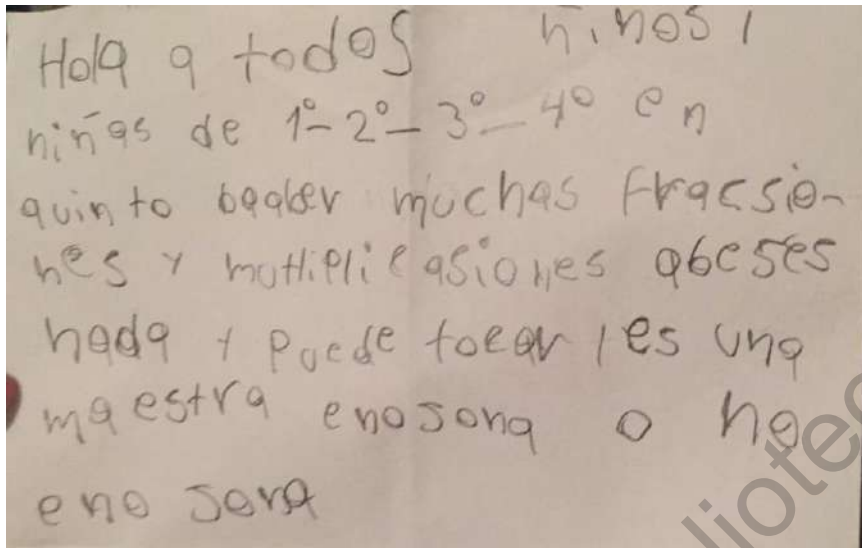 Hola a todos niños i
niñas de 1º-2º-3º-4º en
quinto baaber muchas Fracsio-
nes y multiplicasiones abeses
nada y Puede tocarles una
maestra enojona o no
eno jona